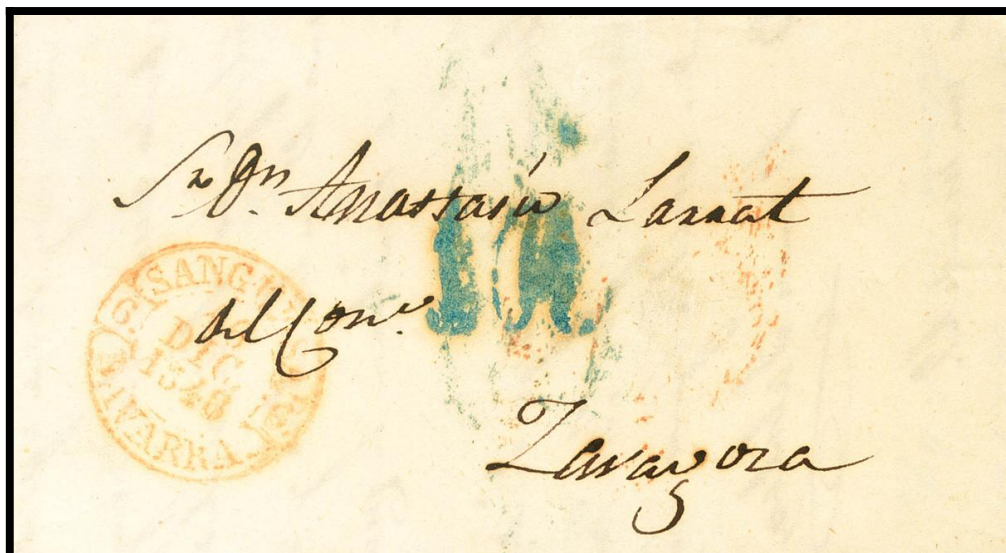 Sr. Dn. Anastasio Larrat
del Como.
Zaragoza
SANG
DIC
1848
NAVARRA